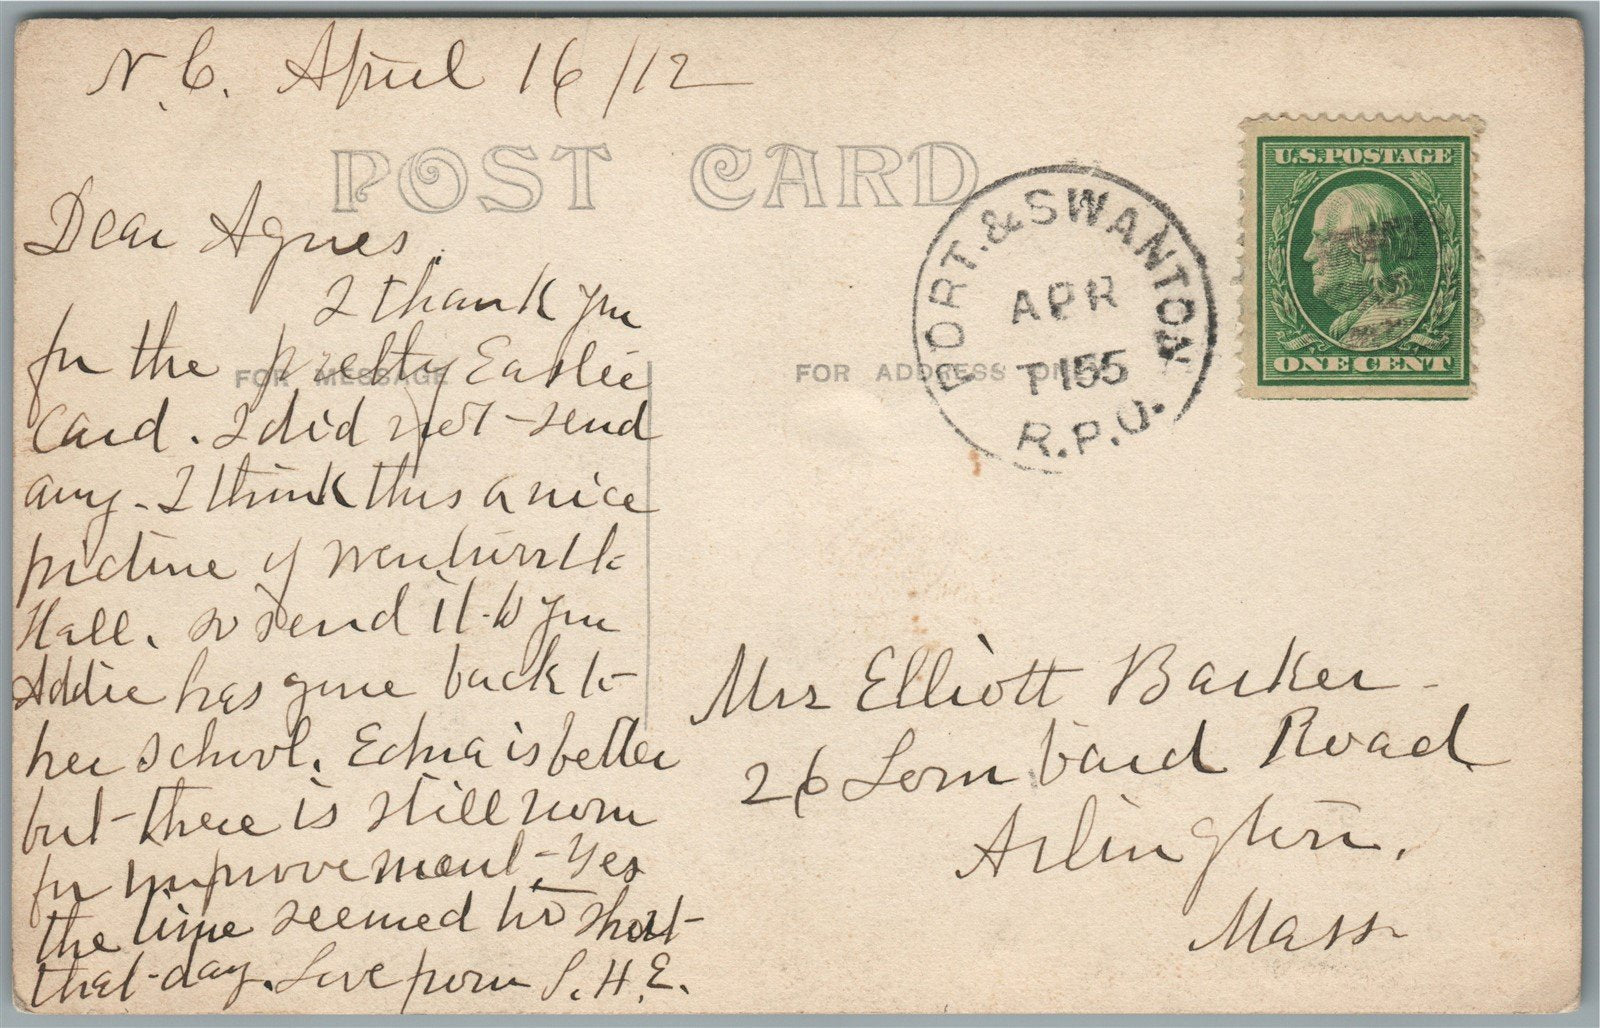 N.C. April 16/12
POST CARD
Dear Agnes.
I thank you
for the pretty Easter
Card. I did not send
any. I think this a nice
picture of Wentworth
Hall. so send it to you
Addie has gone back to
her school. Edna is better
but there is still room
for improvement. Yes
the time seemed too short
that day. Love from S.H.E.
FOR MESSAGE
FOR ADDRESS ONLY
PORT. & SWANTON
APR
155
R.P.O.
U.S. POSTAGE
ONE CENT
Mrs Elliott Barker
26 Lombard Road
Arlington,
Mass